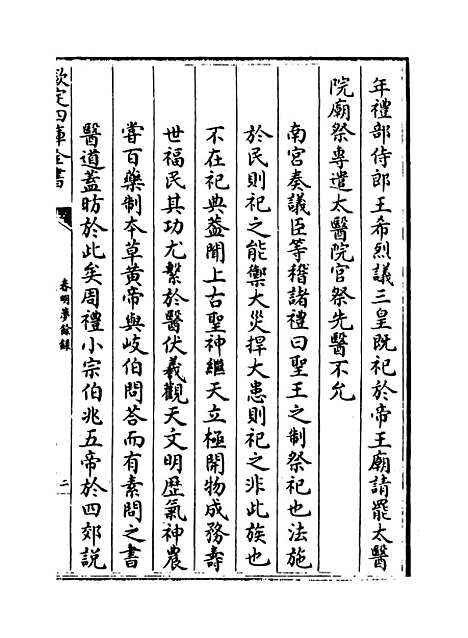 年禮部侍郎王希烈議三皇既祀於帝王廟請罷太醫
院廟祭專遣太醫院官祭先醫不允
南宮奏議臣等稽諸禮曰聖王之制祭祀也法施
於民則祀之能禦大災捍大患則祀之非此族也
不在祀典葢聞上古聖神繼天立極開物成務壽
世福民其功尤繫於醫伏羲觀天文明歴氣神農
嘗百藥制本草黄帝與岐伯問答而有素問之書
醫道葢昉於此矣周禮小宗伯兆五帝於四郊說
欽定四庫全書
春明夢餘録
二